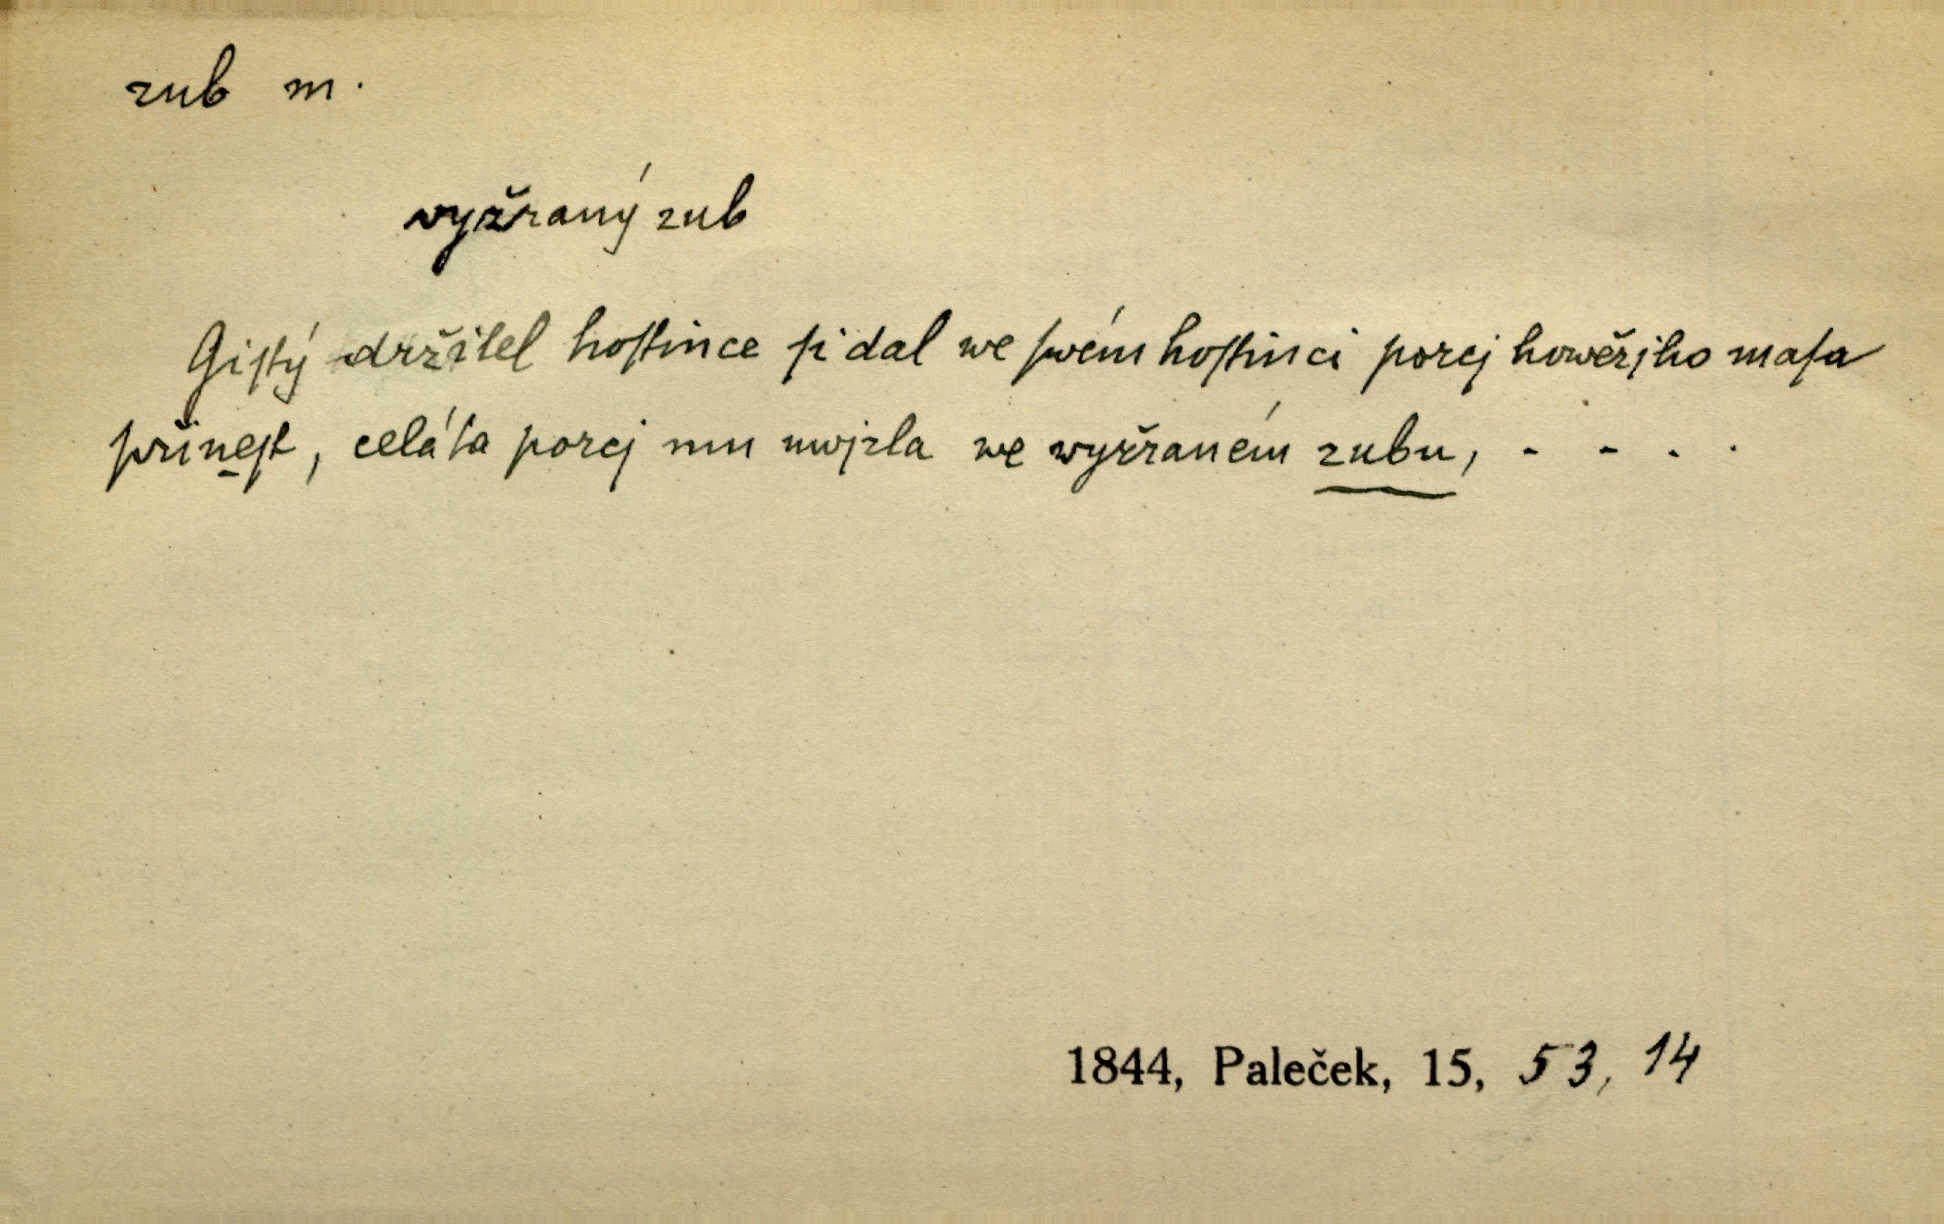 zub m.
vyžraný zub
Giſtý držitel hoſtince ſi dal we ſwém hoſtinci porcj howězjho maſa
přineſt, celá ta porcj mu uwjzla we wyžraném zubu, - - . .
1844, Paleček, 15, 53, 14